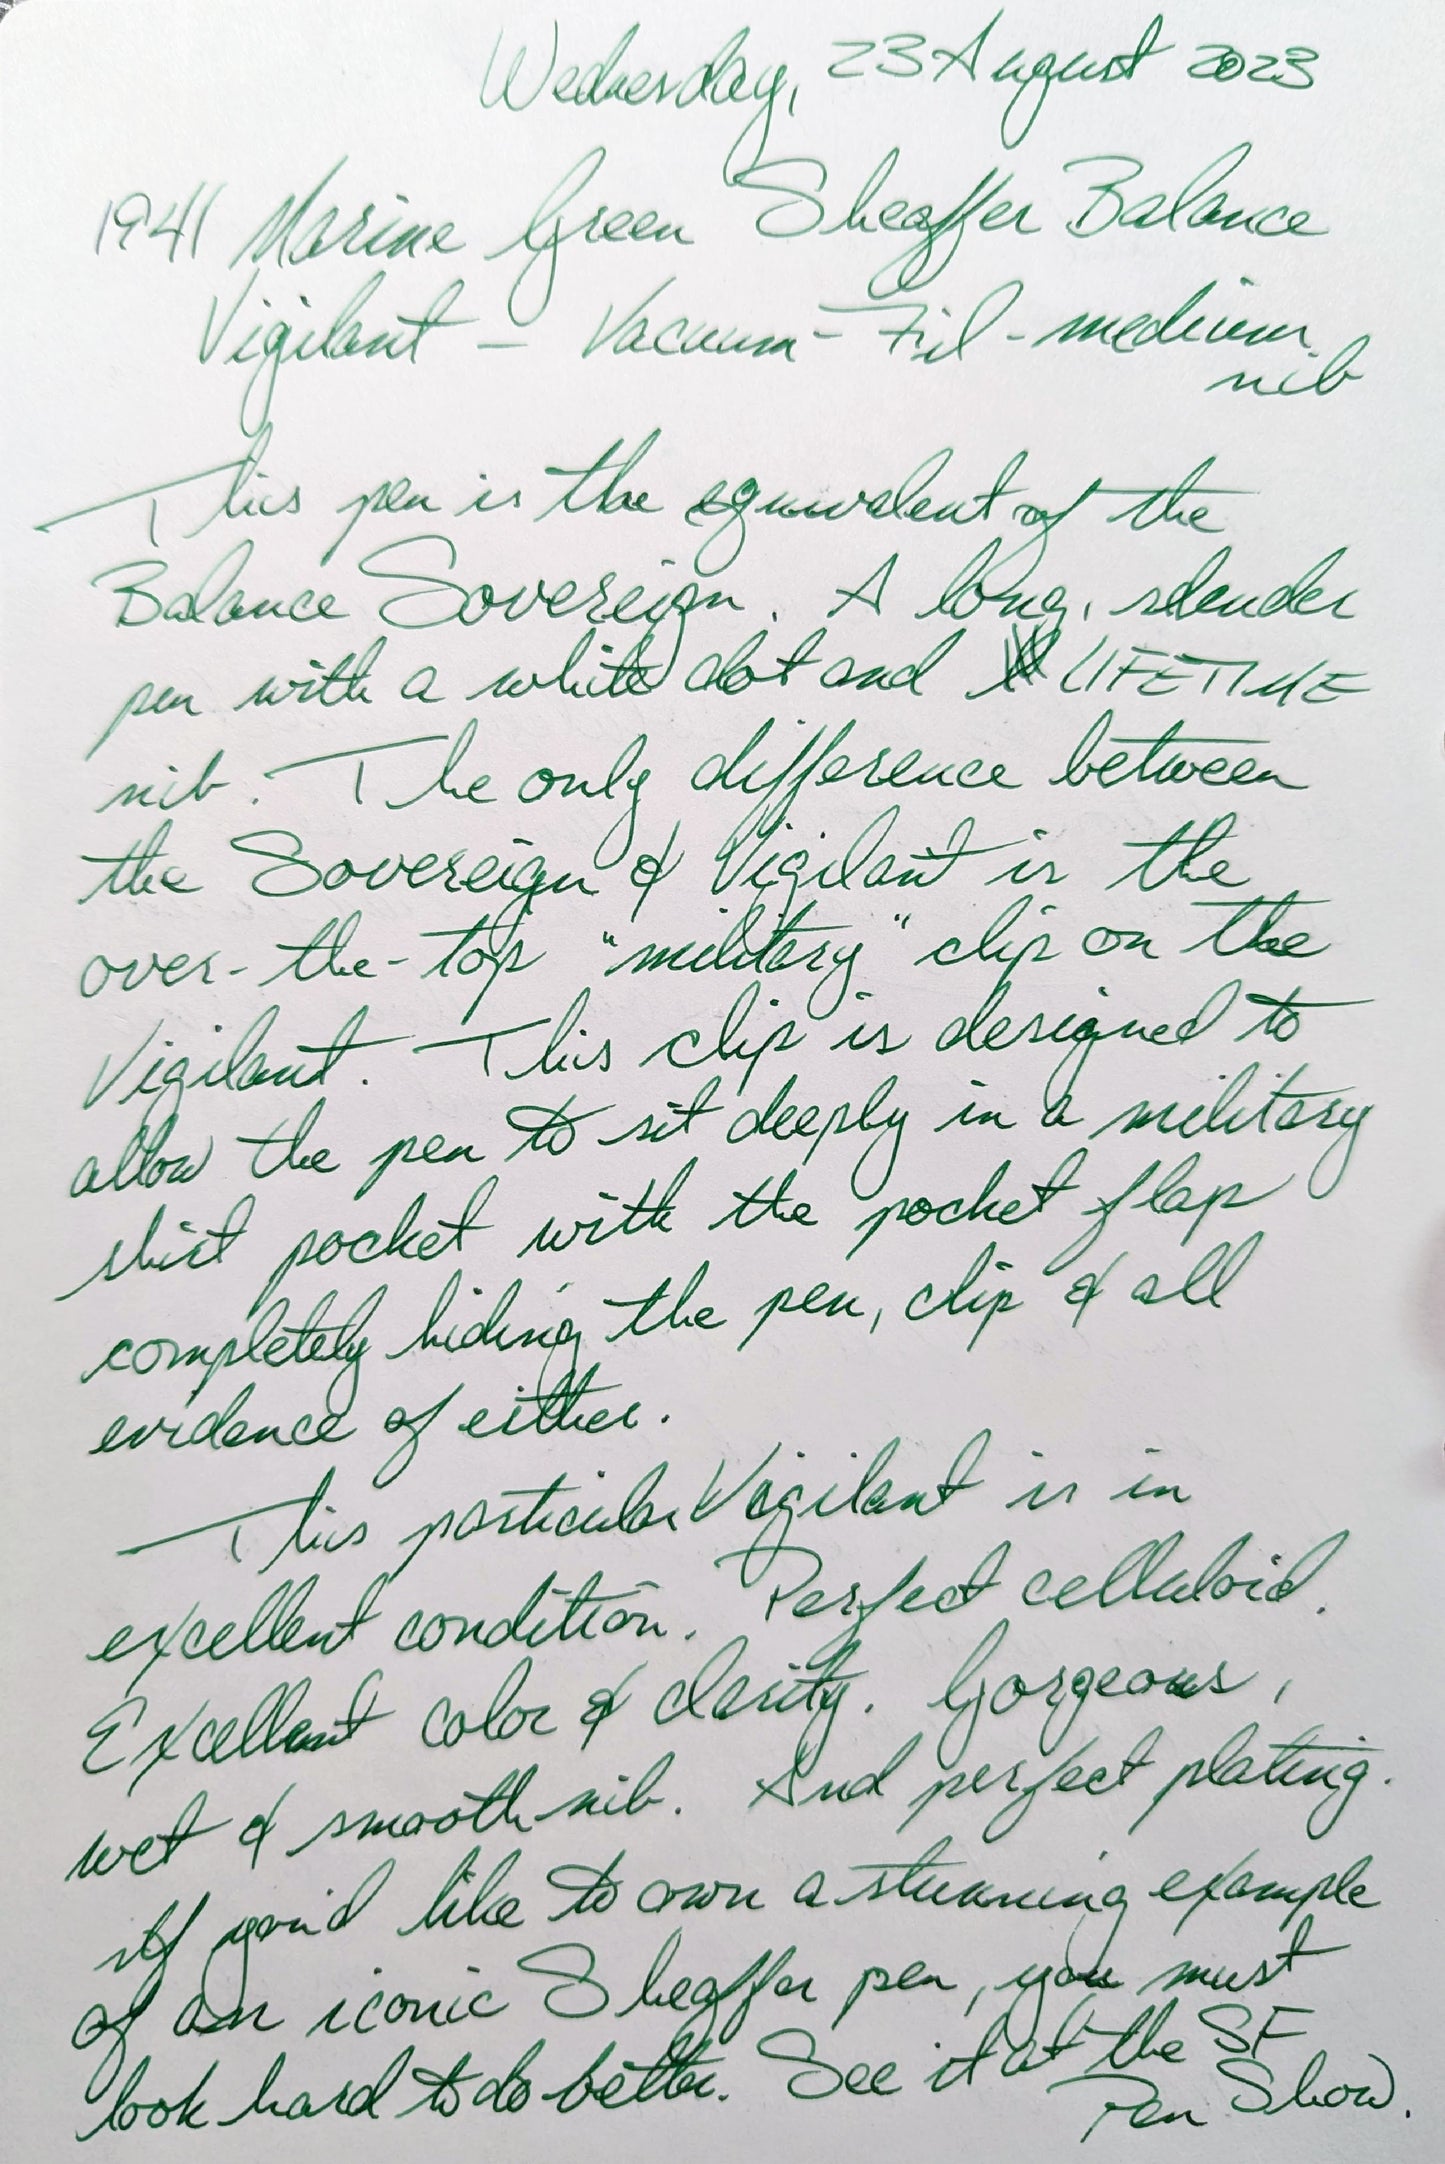 Wednesday, 23 August 2023
1941 Marine Green Sheaffer Balance
Vigilant – Vacuum-Fil - medium
nib
This pen is the equivalent of the
Balance Sovereign. A long, slender
pen with a white dot and LIFETIME
nib. The only difference between
the Sovereign & Vigilant is the
over-the-top "military" clip on the
Vigilant. This clip is designed to
allow the pen to sit deeply in a military
shirt pocket with the pocket flap
completely hiding the pen, clip & all
evidence of either.
This particular Vigilant is in
excellent condition. Perfect celluloid.
Excellent color & clarity. Gorgeous,
wet & smooth nib. And perfect plating.
If you'd like to own a stunning example
of an iconic Sheaffer pen, you must
look hard to do better. See it at the SF
Pen Show.